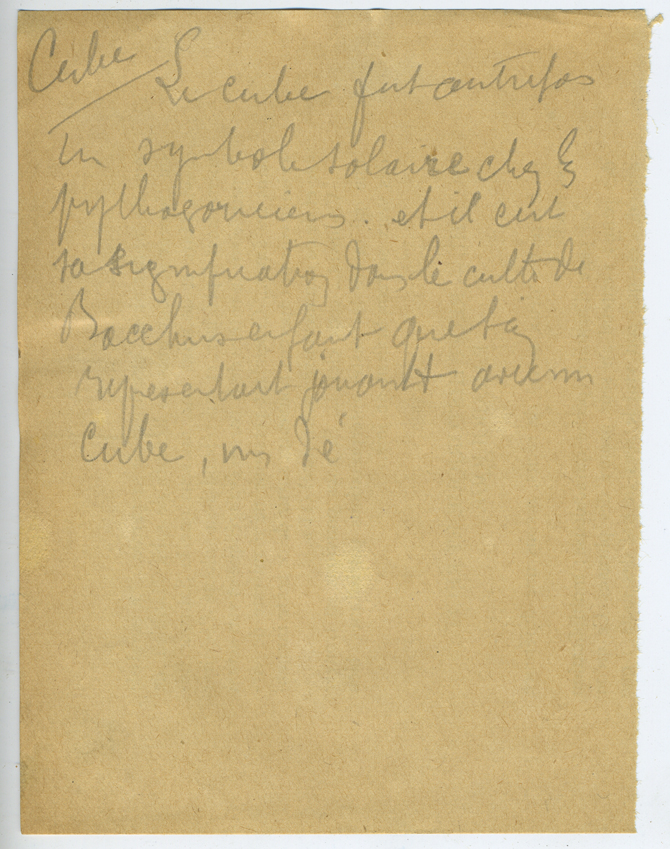 Cube Le cube fut autrefois
un symbole solaire chez les
pythagoriciens. et il eut
sa signification dans le culte de
Bacchus enfant que l'on
représentait jouant avec un
cube, un dé